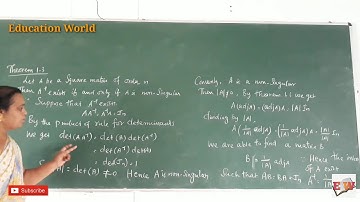 Education World
Theorem 1.3
Let A be a Square matrix of order n
Then A⁻¹ exists if and only if A is non-Singular
Suppose that A⁻¹ exists
AA⁻¹ = A⁻¹A = In
By the product rule for determinants
We get det(AA⁻¹) = det(A) det(A⁻¹)
= det(A⁻¹) det(A)
= det(In) = 1
|A| = det(A) ≠ 0 Hence A is non-Singular
Conversely, A is a non-Singular
Then |A| ≠ 0, By Theorem 1.1 we get
A(adjA) = (adjA)A = |A| In
dividing by |A|,
A(1/|A| adjA) = (1/|A| adjA)A = In
we are able to find a matrix B
B = 1/|A| adjA
Such that AB = BA = In
Hence the
of A
A⁻¹
Subscribe